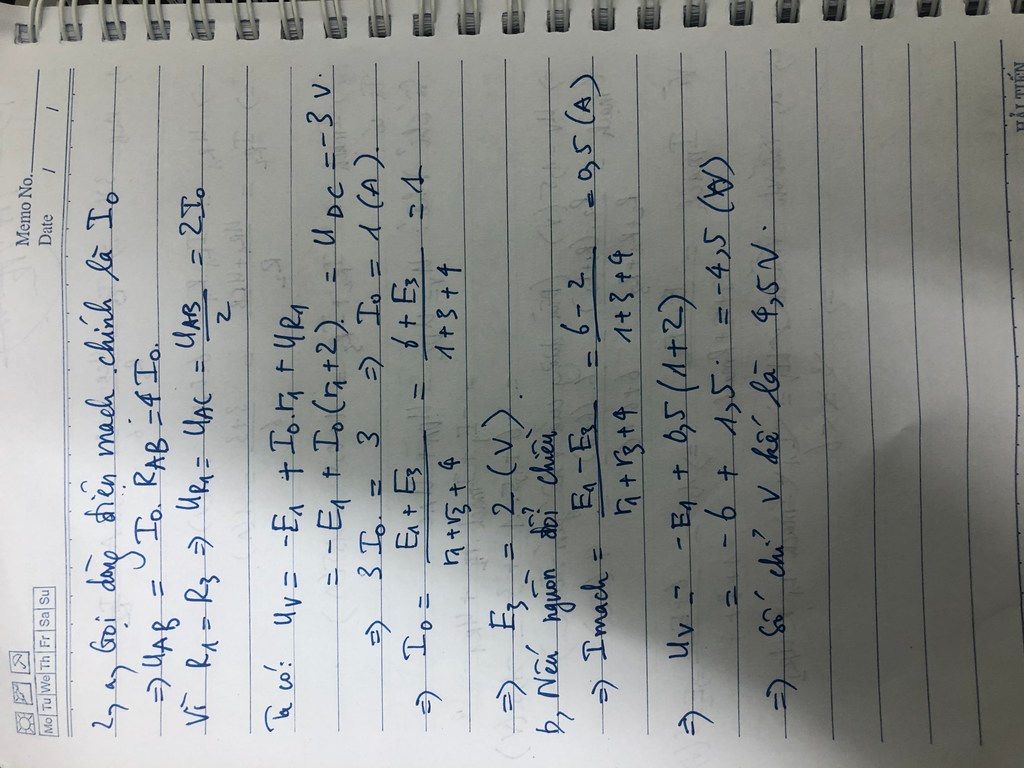 Memo No.
Mo Tu We Th Fr Sa Su
Date / /
2, a, Gọi dòng điện mạch chính là I₀
⇒ U_AB = I₀. R_AB = 4I₀.
Vì R₁ = R₃ ⇒ U_R1 = U_AC = U_AB/2 = 2I₀
Ta có: U_V = -E₁ + I₀.r₁ + U_R1
= -E₁ + I₀(r₁+2) = U_DC = -3 V.
⇒ 3I₀ = 3 ⇒ I₀ = 1(A)
⇒ I₀ = (E₁ + E₃)/(r₁+r₃+4) = (6 + E₃)/(1+3+4) = 1
⇒ E₃ = 2 (V).
b, Nếu nguồn đổi chiều
⇒ I mạch = (E₁ - E₃)/(r₁+r₃+4) = (6 - 2)/(1+3+4) = 0,5 (A)
⇒ U_V = -E₁ + 0,5(1+2)
= -6 + 1,5 = -4,5 (V)
⇒ Số chỉ V kế là 4,5V.
HẢI TIẾN